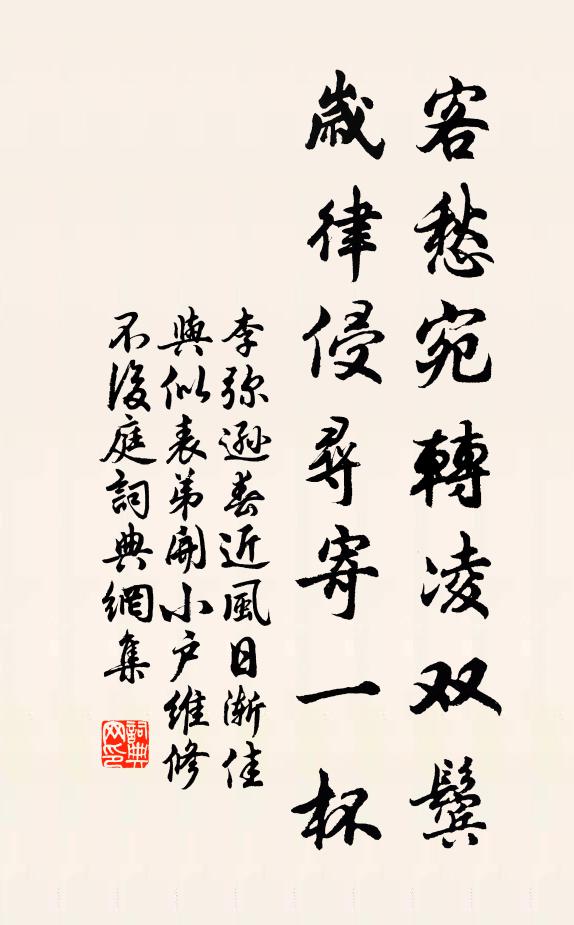 客愁宛轉凌双鬓
歲律侵尋寄一杯
李弥遜春近風日漸佳
與似表弟開小户維修
不後庭詞典網集
詞典
网印